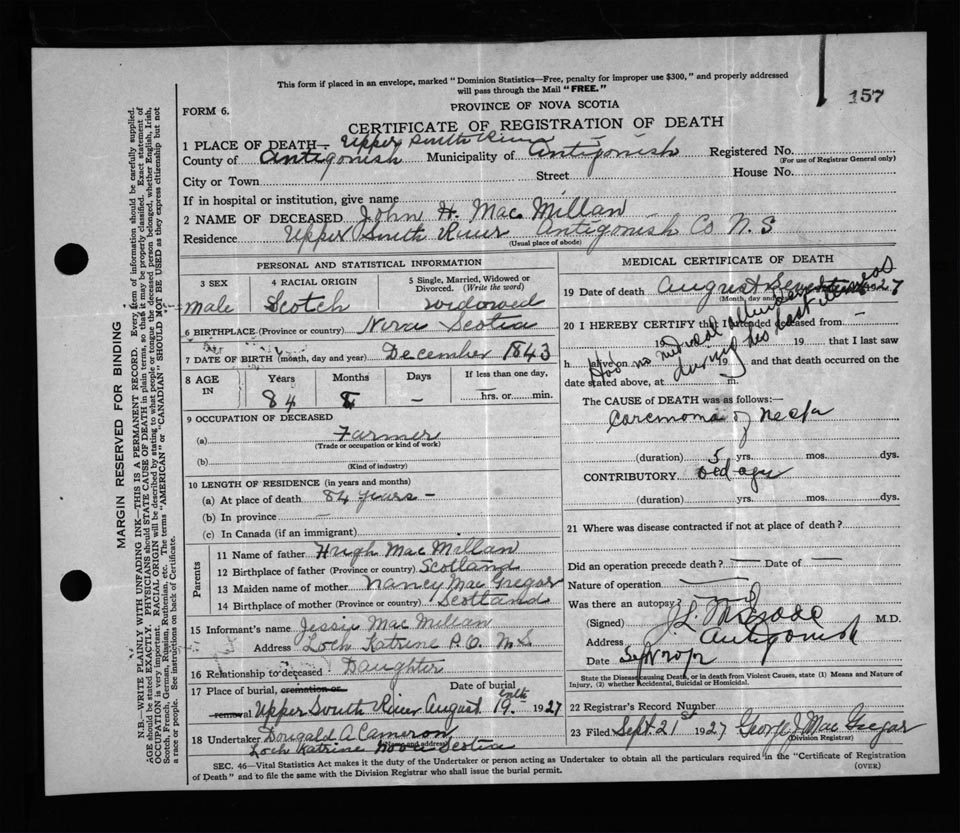 This form if placed in an envelope, marked "Dominion Statistics—Free, penalty for improper use $300," and properly addressed
will pass through the Mail "FREE."
157
FORM 6.
PROVINCE OF NOVA SCOTIA
CERTIFICATE OF REGISTRATION OF DEATH
1 PLACE OF DEATH— Upper South River
County of Antigonish Municipality of Antigonish Registered No.
(For use of Registrar General only)
City or Town Street House No.
If in hospital or institution, give name
2 NAME OF DECEASED John H. Mac Millan
Residence Upper South River Antigonish Co N.S
(Usual place of abode)
PERSONAL AND STATISTICAL INFORMATION
3 SEX 4 RACIAL ORIGIN 5 Single, Married, Widowed or Divorced. (Write the word)
Male Scotch widowed
6 BIRTHPLACE (Province or country) Nova Scotia
7 DATE OF BIRTH (month, day and year) December 1843
8 AGE IN Years Months Days If less than one day,
84 – hrs. or min.
9 OCCUPATION OF DECEASED
(a) Farmer
(Trade or occupation or kind of work)
(b)
(Kind of industry)
10 LENGTH OF RESIDENCE (in years and months)
(a) At place of death 84 years –
(b) In province
(c) In Canada (if an immigrant)
Parents
11 Name of father Hugh Mac Millan
12 Birthplace of father (Province or country) Scotland
13 Maiden name of mother Nancy Mac Gregar
14 Birthplace of mother (Province or country) Scotland
15 Informant's name Jessie Mac Millan
Address Loch Katrine P.O. N.S
16 Relationship to deceased Daughter
17 Place of burial, cremation or removal Date of burial
Upper South River August 19 1927
18 Undertaker Dougald A Cameron
(Name and address)
Loch Katrine Nova Scotia
MEDICAL CERTIFICATE OF DEATH
19 Date of death August 1927
(Month, day and year)
20 I HEREBY CERTIFY that I attended deceased from
19 19 that I last saw
Had no medical attendance
during his last illness
h alive on 19 and that death occurred on the
date stated above, at m.
The CAUSE of DEATH was as follows:—
of neck
(duration) 5 yrs. mos. dys.
CONTRIBUTORY old age
(duration) yrs. mos. dys.
21 Where was disease contracted if not at place of death?
Did an operation precede death? Date of
Nature of operation
Was there an autopsy?
(Signed) J.L. M.D.
Address Antigonish
Date Sept
State the Disease causing Death, or in death from Violent Causes, state (1) Means and Nature of
Injury, (2) whether Accidental, Suicidal or Homicidal.
22 Registrar's Record No.
23 Filed Sept. 21st 1927 George J Mac Gregar
(Division Registrar)
SEC. 46—Vital Statistics Act makes it the duty of the Undertaker or person acting as Undertaker to obtain all the particulars required in the "Certificate of Registration
of Death" and to file the same with the Division Registrar who shall issue the burial permit.
(OVER)
MARGIN RESERVED FOR BINDING
N.B.—WRITE PLAINLY WITH UNFADING INK—THIS IS A PERMANENT RECORD. Every item of information should be carefully supplied.
AGE should be stated EXACTLY. PHYSICIANS should STATE CAUSE OF DEATH in plain terms, so that it may be properly classified. Exact statement of
OCCUPATION is very important. RACIAL ORIGIN will be described by stating to what people or tongue the deceased person belonged, whether English, Irish,
Scotch, French, German, Russian, Ruthenian, etc. The terms "AMERICAN" or "CANADIAN" SHOULD NOT BE USED as they express citizenship but not
a race or people. See instructions on back of Certificate.